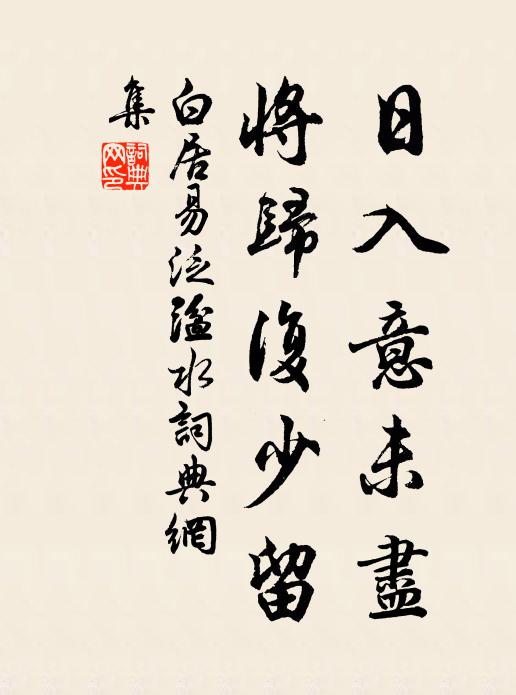 日入意未盡
將歸復少留
白居易泛湓水詞典網
集
詞典網印